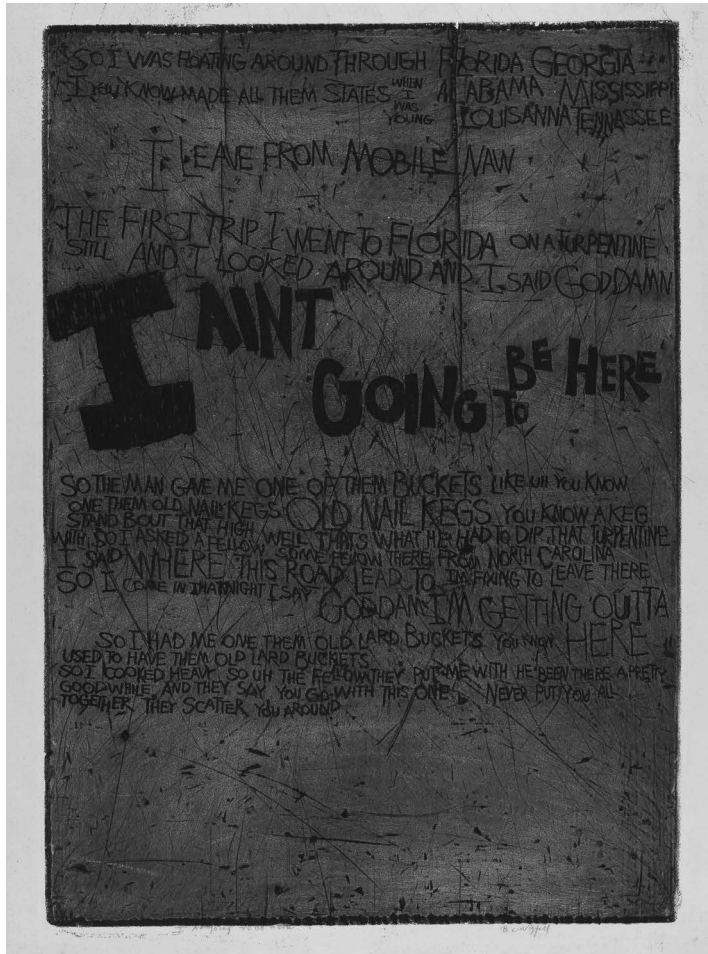 SO I WAS FLOATING AROUND THROUGH FLORIDA GEORGIA
I YOU KNOW MADE ALL THEM STATES WHEN I WAS YOUNG ALABAMA MISSISSIPPI
LOUISANNA TENNASSEE
I LEAVE FROM MOBILE NAW
THE FIRST TRIP I WENT TO FLORIDA ON A TURPENTINE
STILL AND I LOOKED AROUND AND I SAID GODDAMN
I AINT
GOING TO BE HERE
SO THE MAN GAVE ME ONE OF THEM BUCKETS LIKE UH YOU KNOW
ONE THEM OLD NAIL KEGS OLD NAIL KEGS YOU KNOW A KEG
STAND BOUT THAT HIGH WELL THATS WHAT HE HAD TO DIP THAT TURPENTINE
WITH SO I ASKED A FELLOW SOME FELLOW THERE FROM NORTH CAROLINA
I SAID WHERE THIS ROAD LEAD TO IM FIXING TO LEAVE THERE
SO I COME IN THAT NIGHT I SAY GODDAM IM GETTING OUTTA
HERE
SO I HAD ME ONE THEM OLD LARD BUCKETS YOU KNOW
USED TO HAVE THEM OLD LARD BUCKETS
SO I COOKED HEAVY SO UH THE FELLOW THEY PUT ME WITH HE BEEN THERE A PRETTY
GOOD WHILE AND THEY SAY YOU GO WITH THIS ONE NEVER PUT YOU ALL
TOGETHER THEY SCATTER YOU AROUND